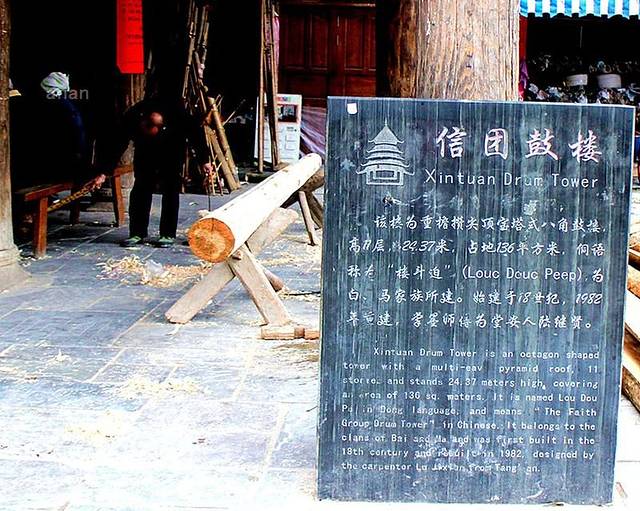 arian
信团鼓楼
Xintuan Drum Tower
该楼为重檐攒尖顶宝塔式八角鼓楼,
高11层,24.37米,占地136平方米,侗语
称为"楼斗迫"(Louc Douc Peep),为
白、马家族所建。始建于18世纪,1982
年重建,掌墨师傅为堂安人陆继贤。
Xintuan Drum Tower is an octagon shaped
tower with a multi-eav pyramid roof, 11
stories and stands 24.37 meters high, covering
an area of 136 sq. meters. It is named Lou Dou
Pu in Dong language, and means "The Faith
Group Drum Tower" in Chinese. It belongs to the
clans of Bai and Ma and was first built in the
18th century and rebuilt in 1982, designed by
the carpenter Lu from Tang'an.